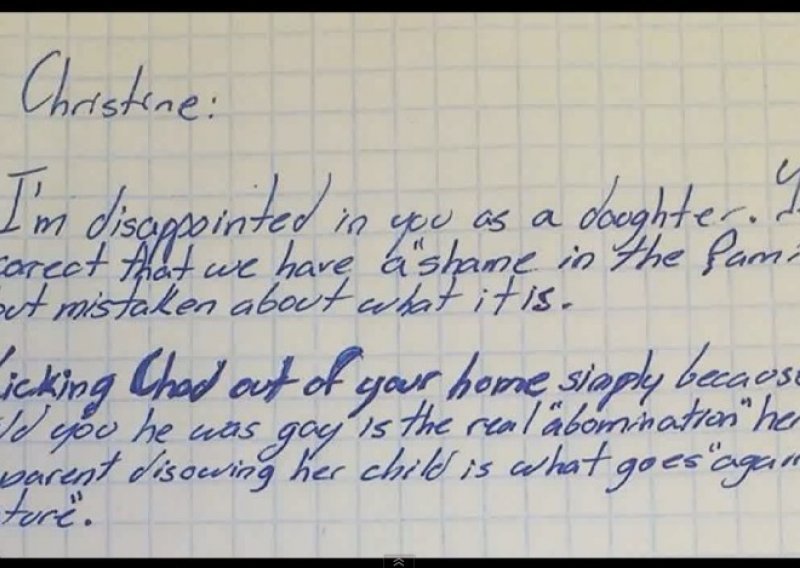 Christine:
I'm disappointed in you as a daughter. Y
corect that we have a "shame in the fami
out mistaken about what it is.
Kicking Chad out of your home simply because
ld you he was gay is the real "abomination" her
parent disowing her child is what goes "again
ture".